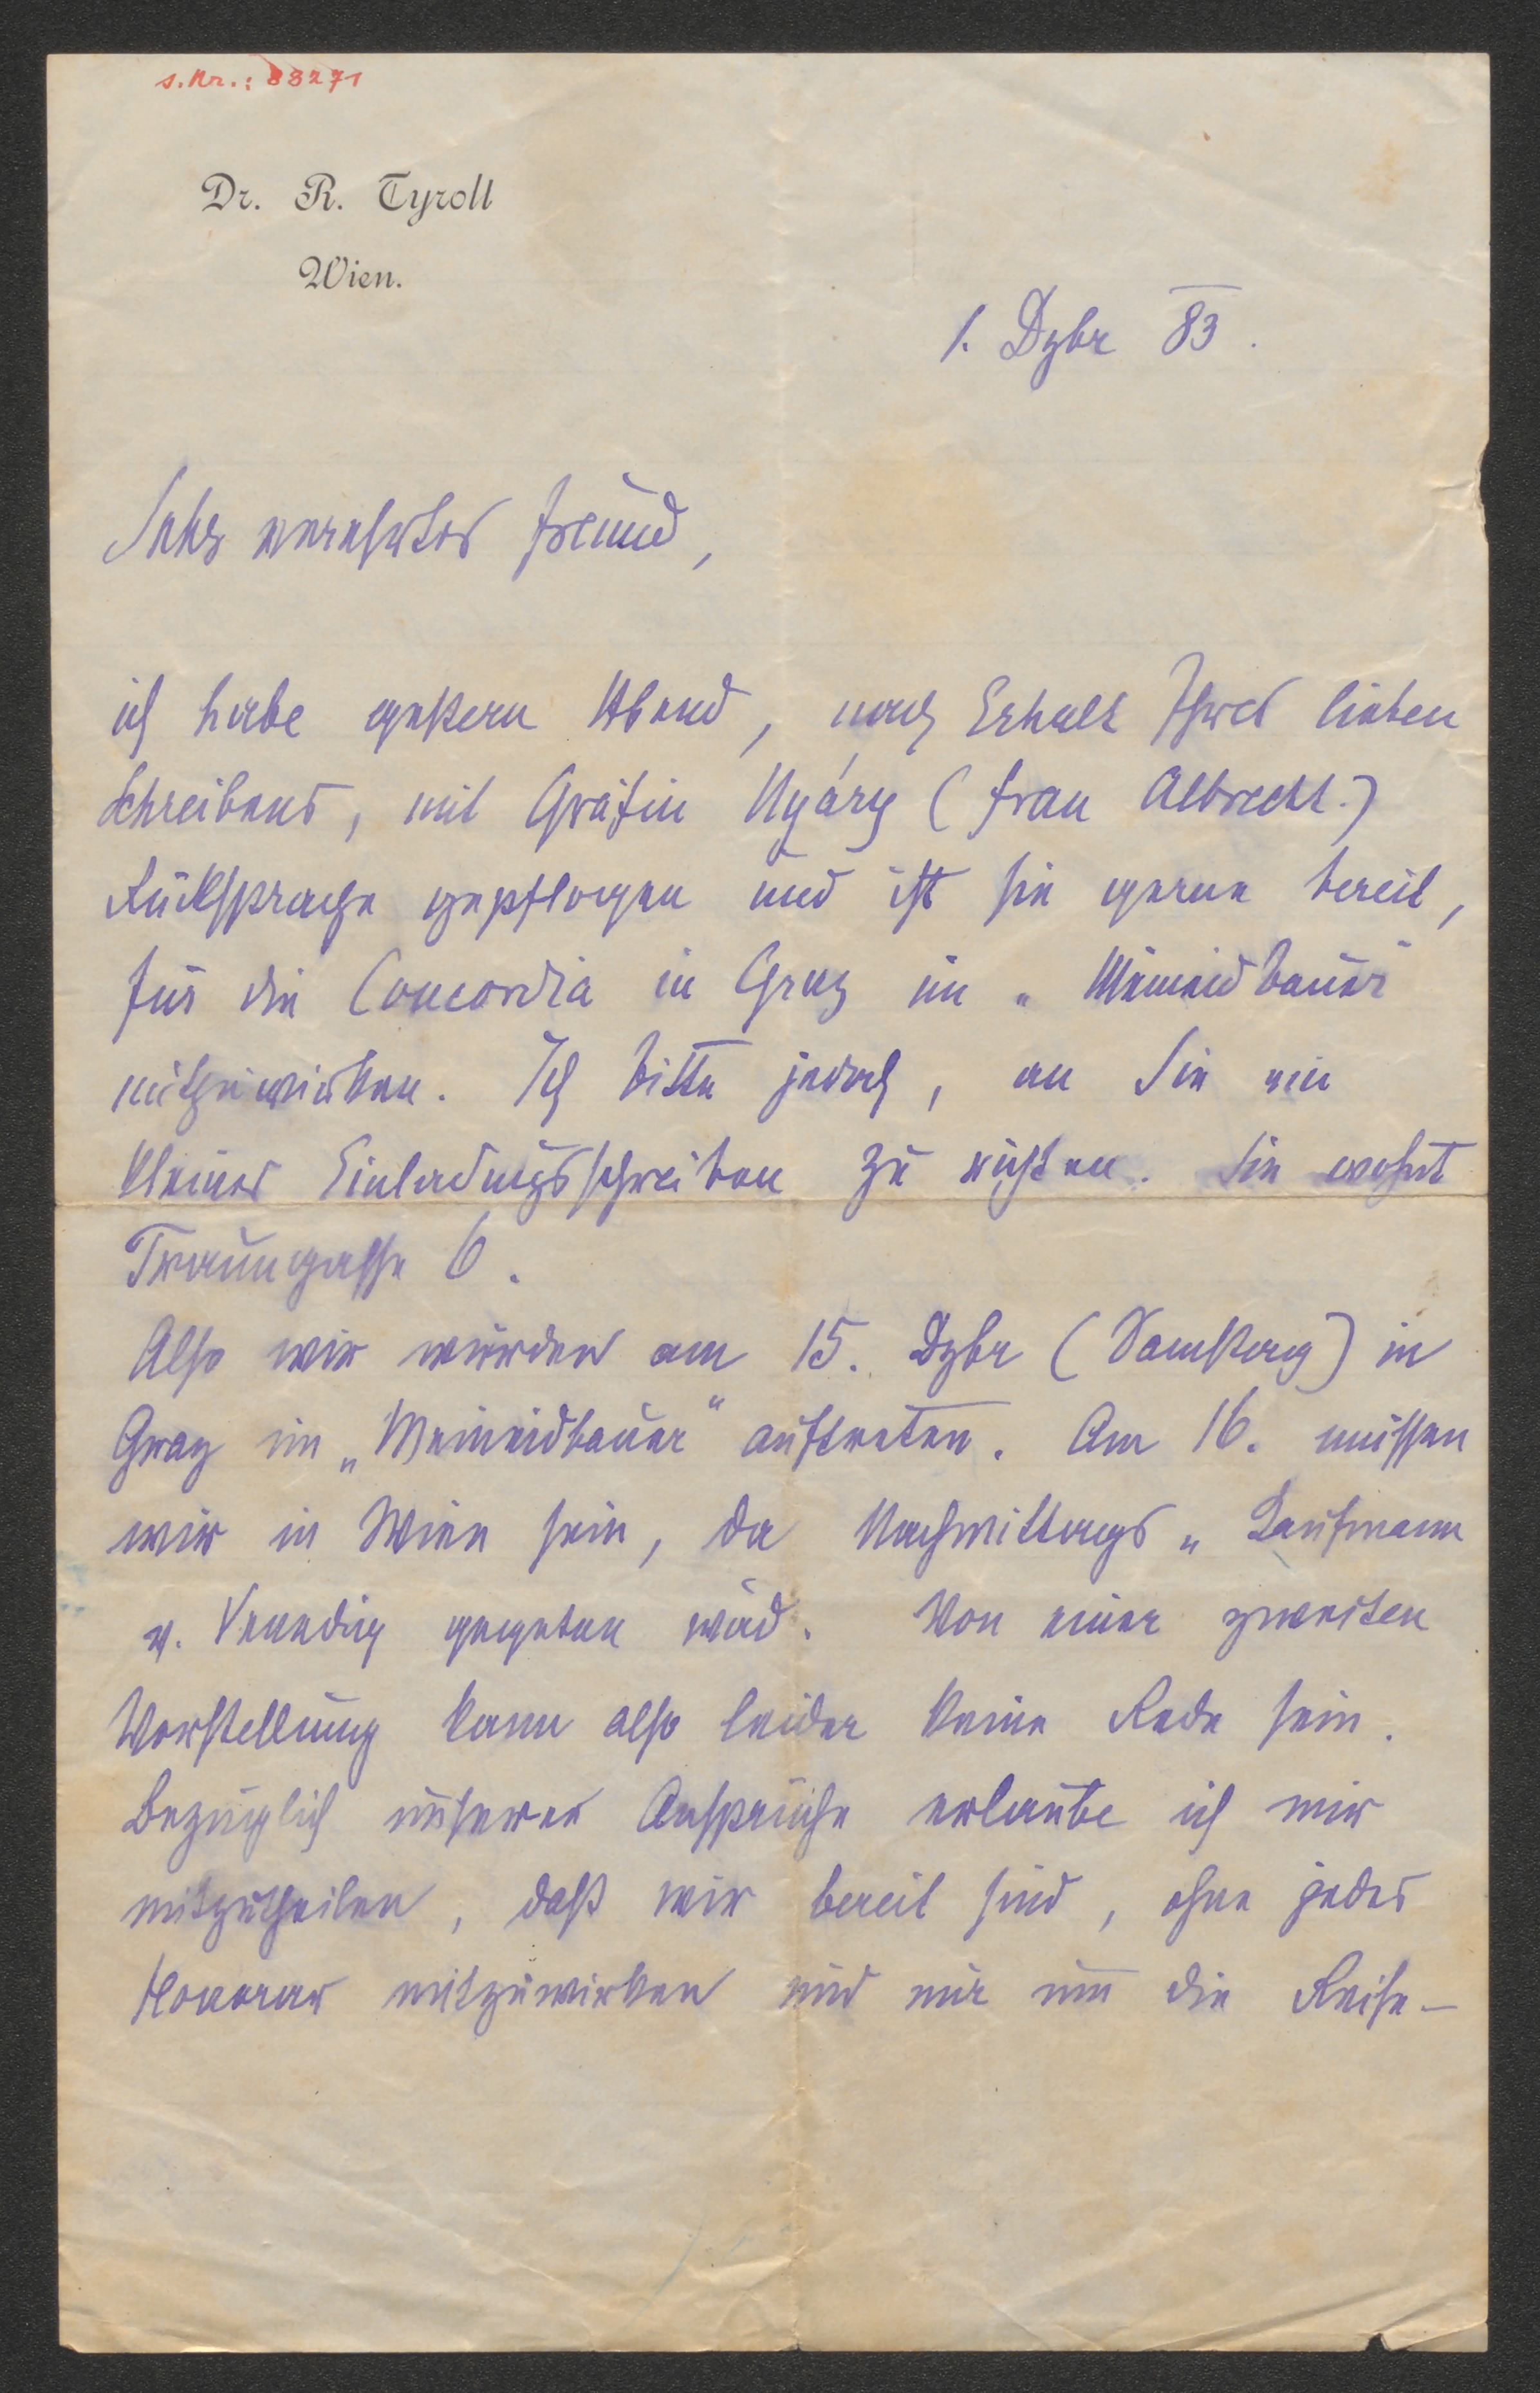 s. Nr.: 88271
Dr. R. Tyrolt
Wien.
1. Dzbr 83.
Sehr verehrter Freund,
ich habe gestern Abend, nach Erhalt Ihres lieben
Schreibens, mit Gräfin Nyáry (Frau Albrecht.)
Rücksprache gepflogen und ist sie gerne bereit,
für die Concordia in Graz im „Meineidbauer"
mitzuwirken. Ich bitte jedoch, an Sie ein
kleines Einladungsschreiben zu richten. Sie wohnt
Traungasse 6.
Also wir würden am 15. Dzbr (Samstag) in
Graz im „Meineidbauer" auftreten. Am 16. müssen
wir in Wien sein, da Nachmittags „Kaufmann
v. Venedig gegeben wird. Von einer zweiten
Vorstellung kann also leider keine Rede sein.
Bezüglich unserer Ansprüche erlaube ich mir
mitzutheilen, daß wir bereit sind, ohne jedes
Honorar mitzuwirken und nur um die Reise-